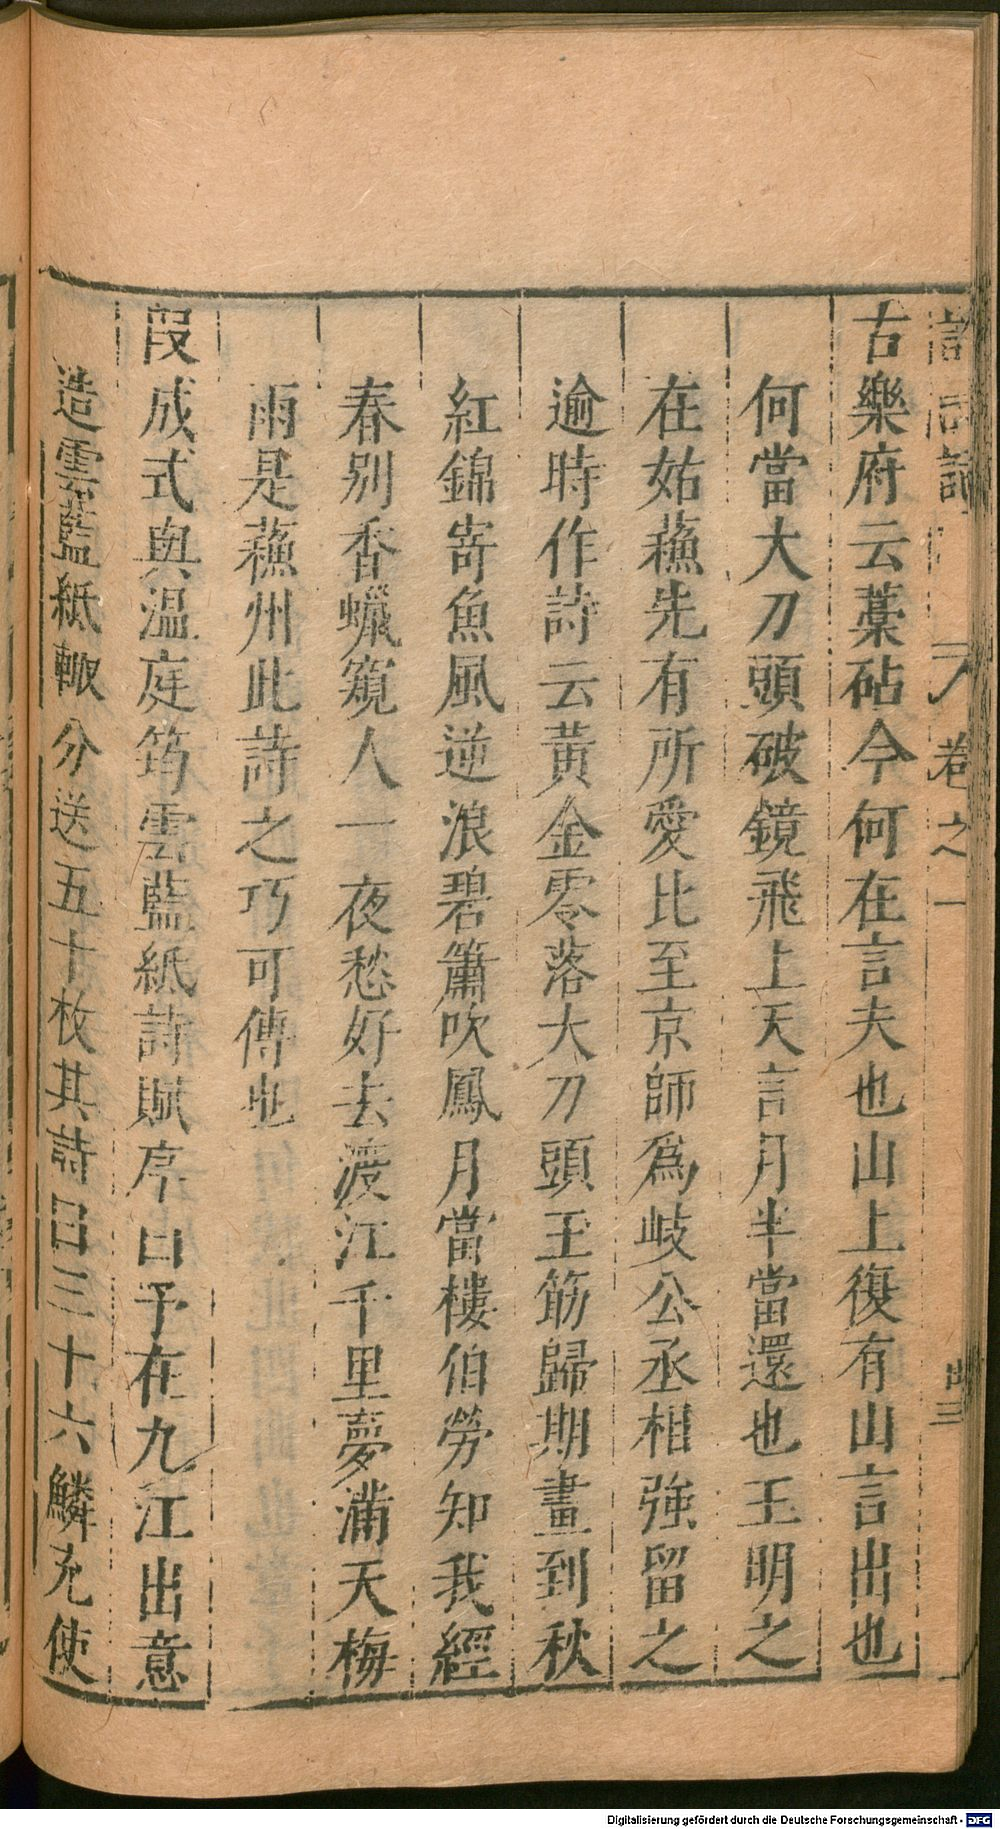 古樂府云藁砧今何在言夫也山上復有山言出也
何當大刀頭破鏡飛上天言月半當還也王明之
在姑蘓先有所愛比至京師爲岐公丞相強留之
逾時作詩云黃金零落大刀頭玉筯歸期畫到秋
紅錦寄魚風逆浪碧簫吹鳳月當樓伯勞知我經
春别香蠟窺人一夜愁好去渡江千里夢滿天梅
雨是蘓州此詩之巧可傳也
段成式與温庭筠雲藍紙詩賦序曰予在九江出意
造雲藍紙輙分送五十枚其詩曰三十六鱗充使
卷之一
Digitalisierung gefördert durch die Deutsche Forschungsgemeinschaft - DFG